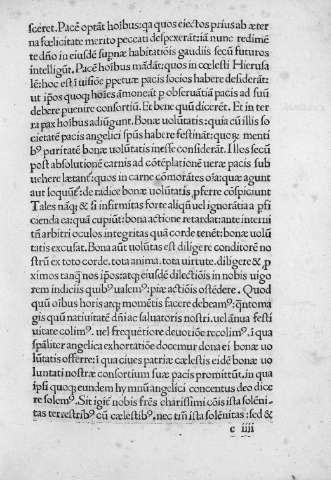 sceret. Pacē optāt hoībus: qa quos eiectos prius ab æter
na fœlicitate merito peccati despexerāt: iā nunc redimē
te dño in eiusdē supnæ habitatiōis gaudiis secū futuros
intelligūt. Pacē hoībus mādāt: quos in cœlesti Hierusa
lē: hoc est ī uisiōe ppetuæ pacis socios habere desiderāt:
ut ipos quoq; hoīes āmoneāt p obseruātiā pacis ad suū
debere puenire consortiū. Et bene quū dicerēt. Et in ter
ra pax hoībus adiugūt. Bonæ uolūtatis: quia cū illis so
cietatē pacis angelici spūs habere festināt: quoꝝ menti
bꝰ puritatē bonæ uolūtatis inesse considerāt. Illos secū
post absolutionē carnis ad cōtēplationē ueræ pacis sub
uehere lætantʳ: quos in carne cōmorātes oīa: quæ agunt
aut loquūtʳ: de radice bonæ uolūtatis pferre cōspiciunt
Tales nāq; & si infirmitas forte aliqñ uel ignorātia a pfi
cienda ea: quā cupiūt: bona actione retardat: ante interni
tñ arbitri oculos integritas quā corde tenēt: bonæ uolū
tatis excusat. Bona aūt uolūtas est diligere conditorē no
strū ex toto corde, tota anima, tota uirtute, diligere & p
ximos tanq̄ nos ipos: atq; eiusdē dilectiōis in nobis uigo
rem indiciis quibꝰ ualemꝰ: piæ actiōis ostēdere. Quod
quū oībus horis atq; momētis facere debeamꝰ: q̄nto ma
gis quū natiuitatē dñi ac saluatoris nostri, uel ānua festi
uitate colimꝰ, uel frequētiore deuotiōe recolimꝰ, ī qua
spāliter angelica exhortatiōe docemur dona ei bonæ uo
lūtatis offerre: ī qua ciues patriæ cælestis eidē bonæ uo
luntati nostræ consortium suæ pacis promittūt, in qua
ipsi quoq; eundem hymnū angelici concentus deo dice
re solemꝰ. Sit igiʳ nobis frēs charissimi cōis ista solēni
tas terrestribꝰ cū cælestibꝰ, nec trm̄ ista solēnitas: sed &
c iiii